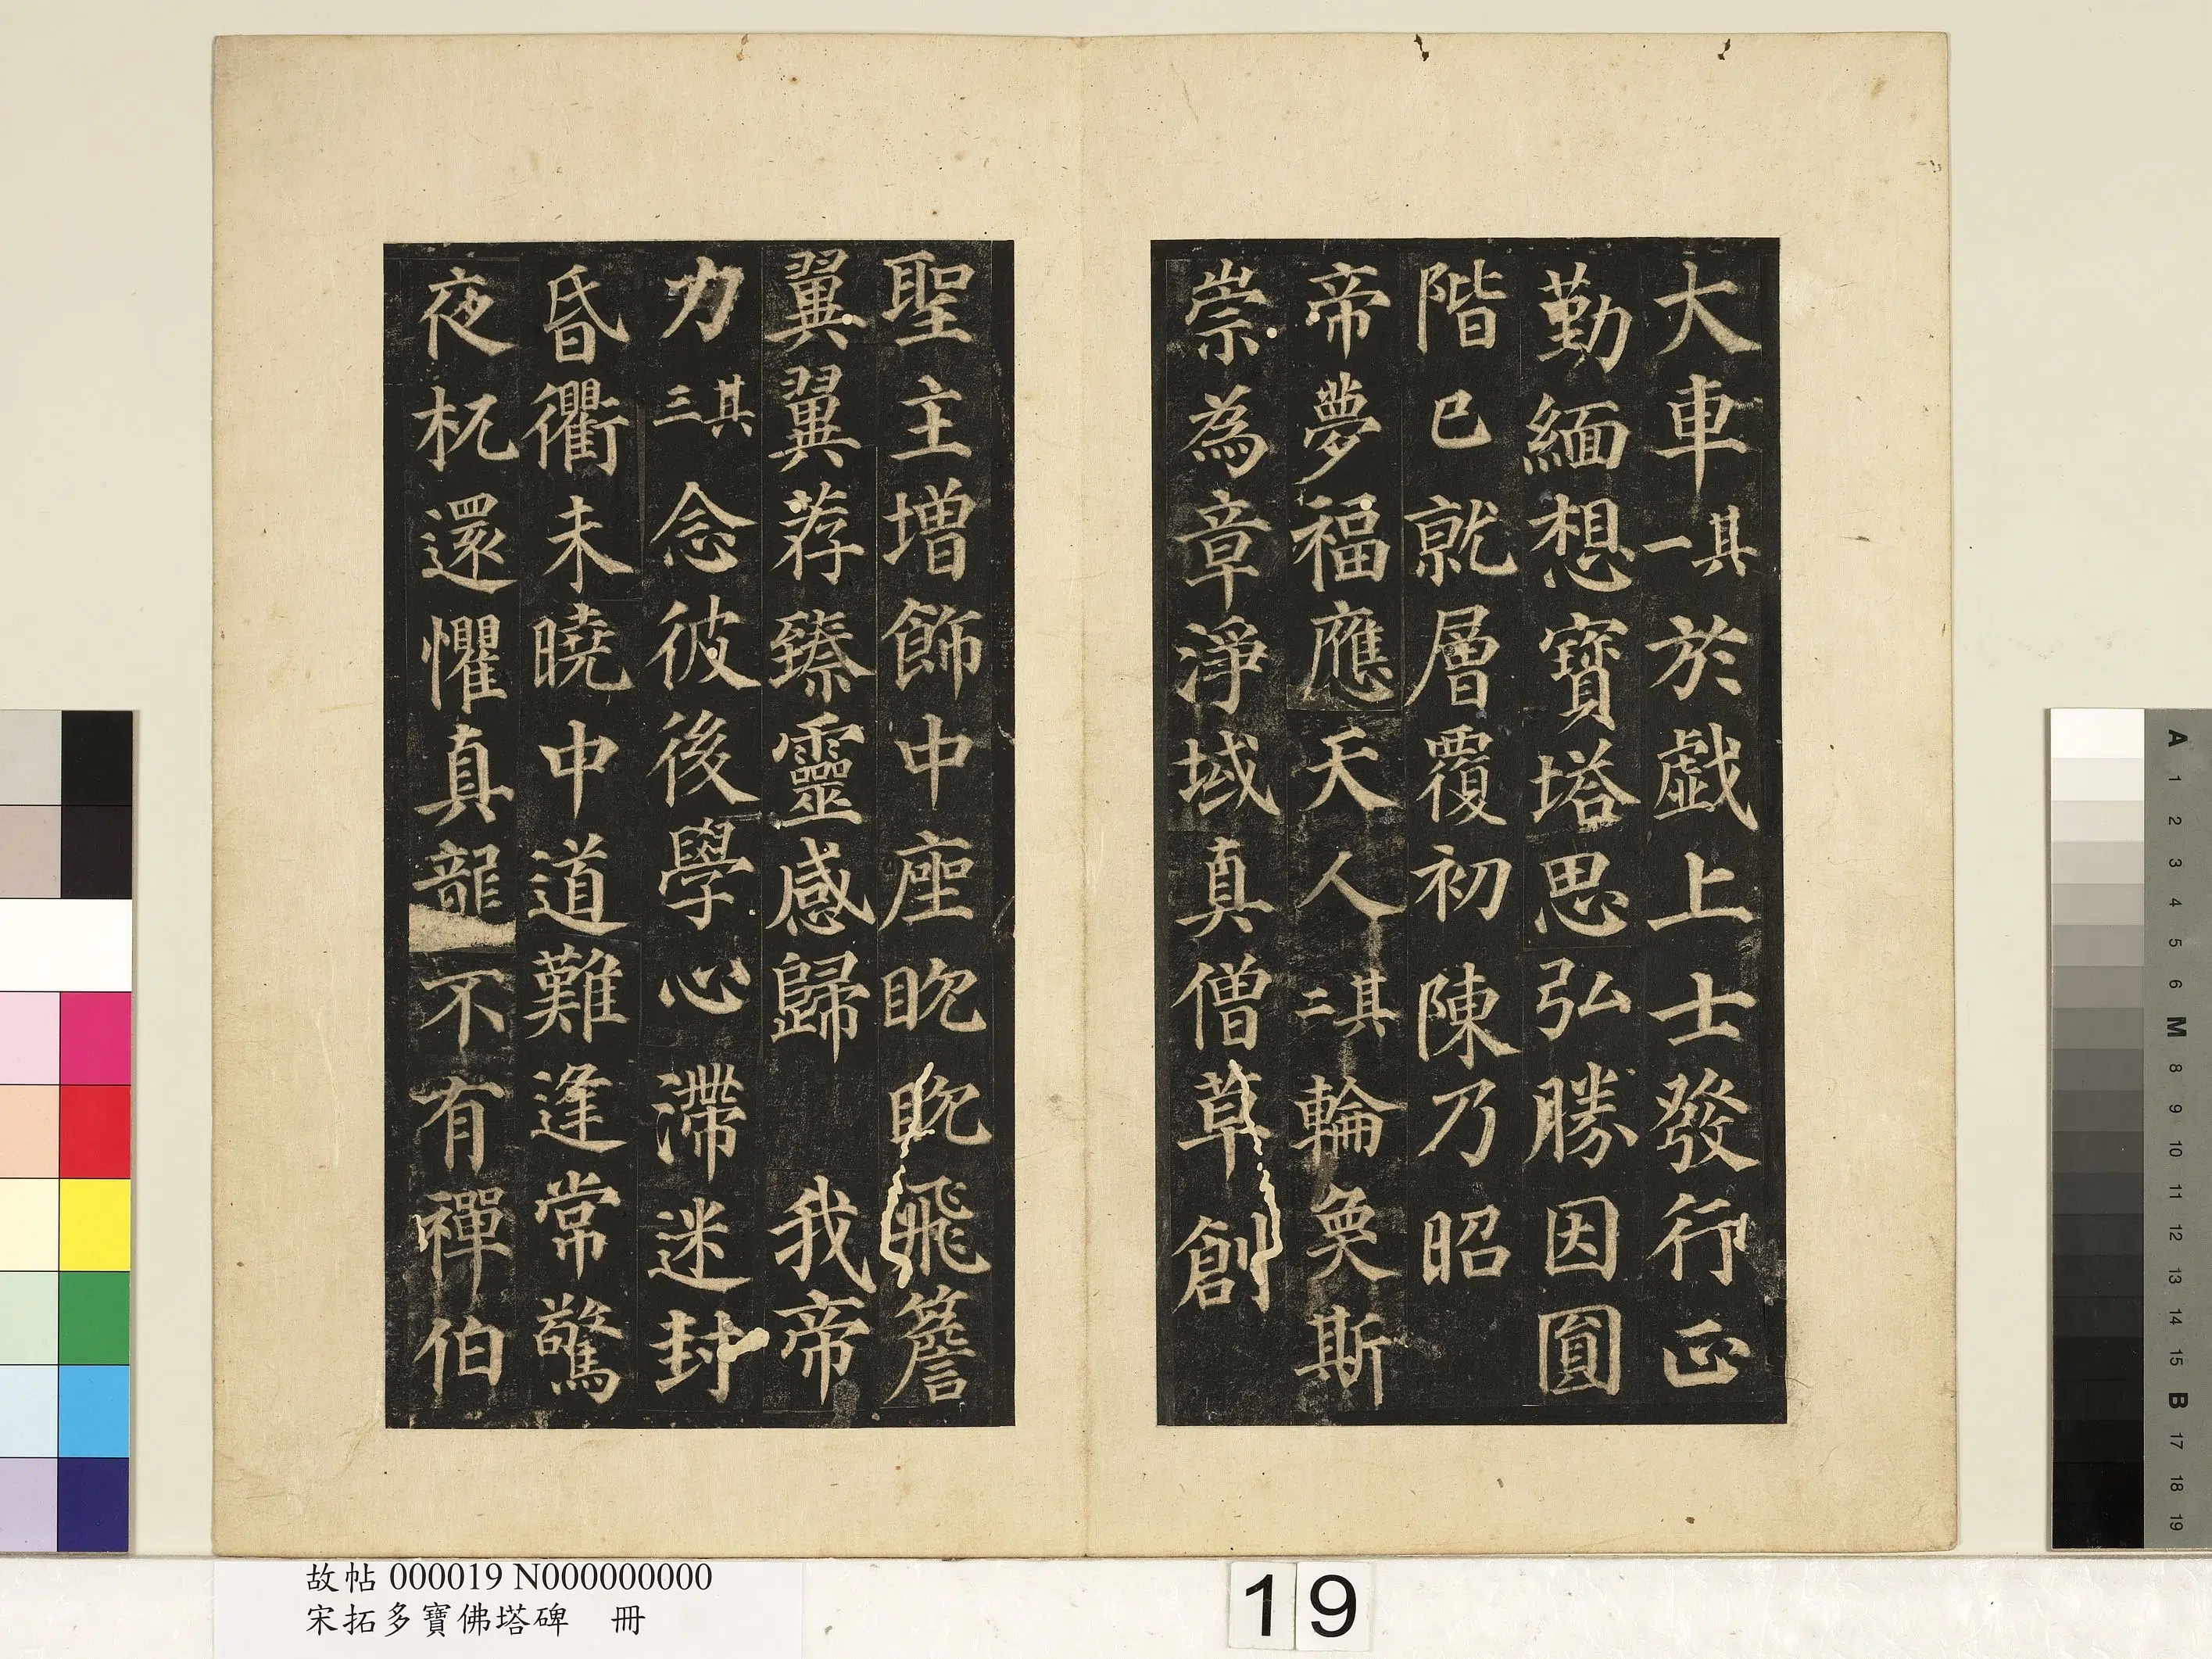 大車其一於戲上士發行正
勤緬想寶塔思弘勝因圓
階已就層覆初陳乃昭
帝夢福應天人其二輪奐斯
崇為章淨域真僧草創
聖主增飾中座眈眈飛簷
翼翼荐臻靈感歸我帝
力其三念彼後學心滯迷封
昏衢未曉中道難逢常驚
夜杌還懼真龍不有禪伯
故帖 000019 N000000000
宋拓多寶佛塔碑 冊
19
A 1 2 3 4 5 6 M 8 9 10 11 12 13 14 15 B 17 18 19